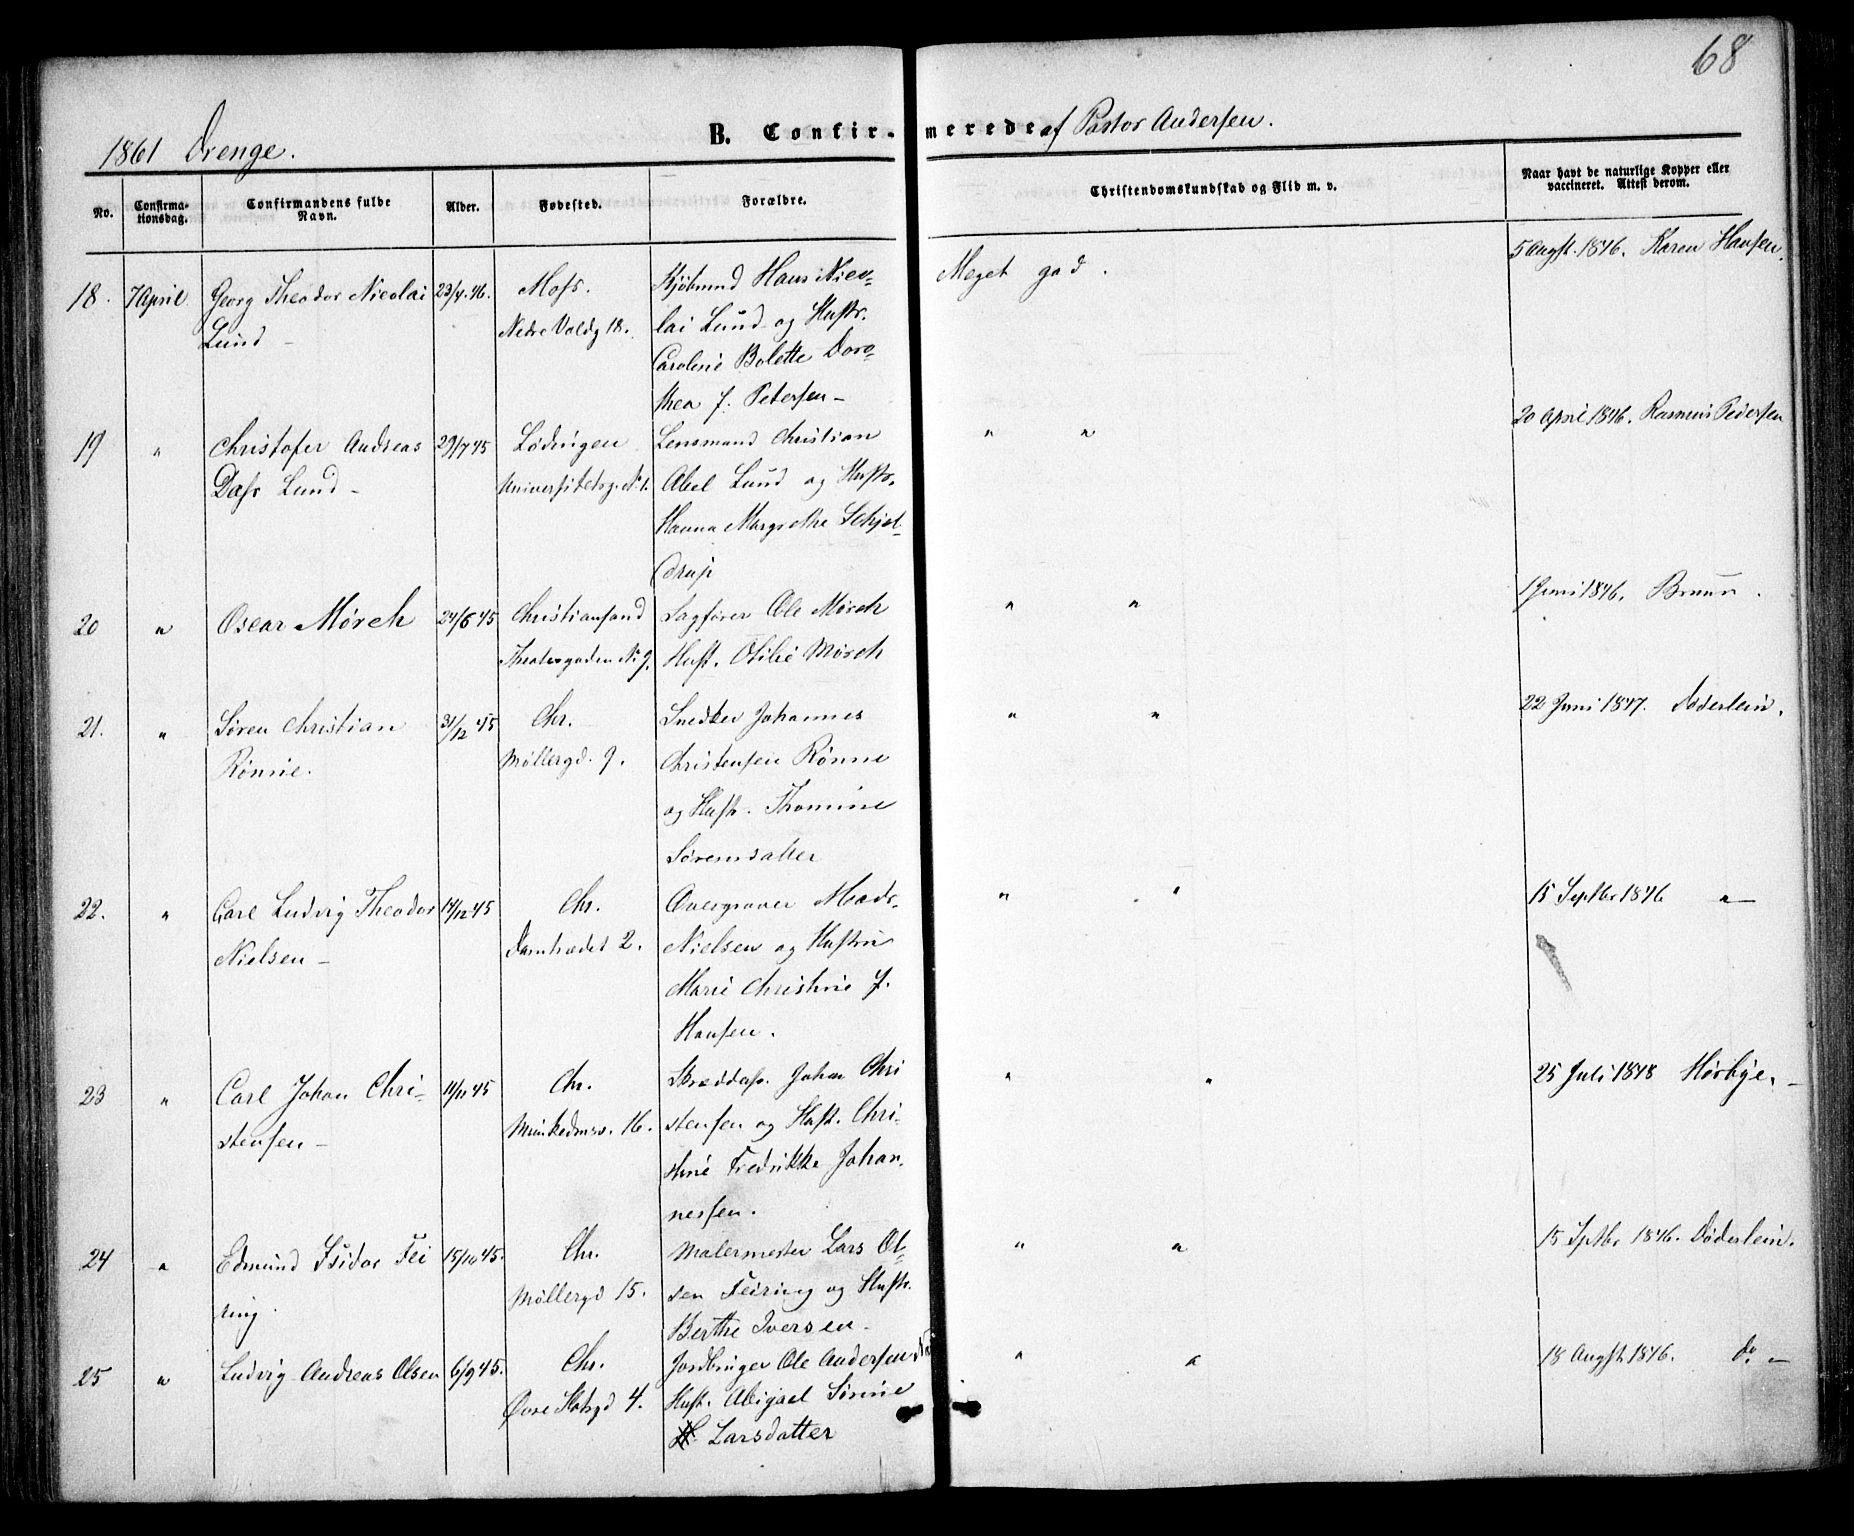 68
1861 Drenge.
B. Confirmerede af Pastor Andersen.
No.
Confirmationsdag.
Confirmandens fulde Navn.
Alder.
Fødested.
Forældre.
Christendomskundskab og Flid m. v.
Naar havt de naturlige Kopper eller vaccineret. Attest derom.
18. 7 April Georg Theodor Nicolai 23/4.46. Moss. Kjøbmnd Hans Nico- Meget god. 5 Augst. 1846. Karen Hansen.
Lund - Nedre Voldg 18. lai Lund og Hustr.
Caroline Bolette Doro-
thea f. Petersen -
19 " Christofer Andreas 29/7 45 Lødingen Lensmand Christian " " 20 April 1846. Rasmus Pedersen
Dass Lund - Universitetsg. N. 1. Abel Lund og Hustr.
Hanna Margrethe Schjel-
drup
20 " Oscar Mørch 24/6 45 Christiansand Sagfører Ole Mørch " " 1 Juni 1846. Bruun.
Theatergaden N 9. Hust. Otilie Mørch
21. " Søren Christian 31/12 45 Chr. Snedker Johannes " " 22 Juni 1847. Døderlein.
Rønne. Møllergd. 9. Christensen Rønne
og Hustr. Thomine
Sørensdatter
22. " Carl Ludvig Theodor 14/12 45 Chr. Overgraver Mads " " 15 Septbr 1846 " -
Nielsen - Damstrædet 2. Nielsen og Hustru
Marie Christine f.
Hansen.
23 " Carl Johan Chri- 11/11 45 Chr. Skræddsv. Johan Chri " " 25 Juli 1848 Hørbye. -
stensen - Munkedmsv. 16. stensen og Hust. Chri-
stine Fredrikke Johan-
nessen.
24 " Edmund Isidor Fei 15/10 45. Chr. Malermester Lars Ol- " " 15 Sptbr 1846. Døderlein.
ring. Møllergd 15. sen Feiring og Hustr.
Berthe Iversen -
25 " Ludvig Andreas Olsen 6/9 45. Chr. Jordbruger Ole Andersen " " 18 Augst 1846. do -
Øvre Slotsgd 4. Hust. Abigael Sørine
Larsdatter